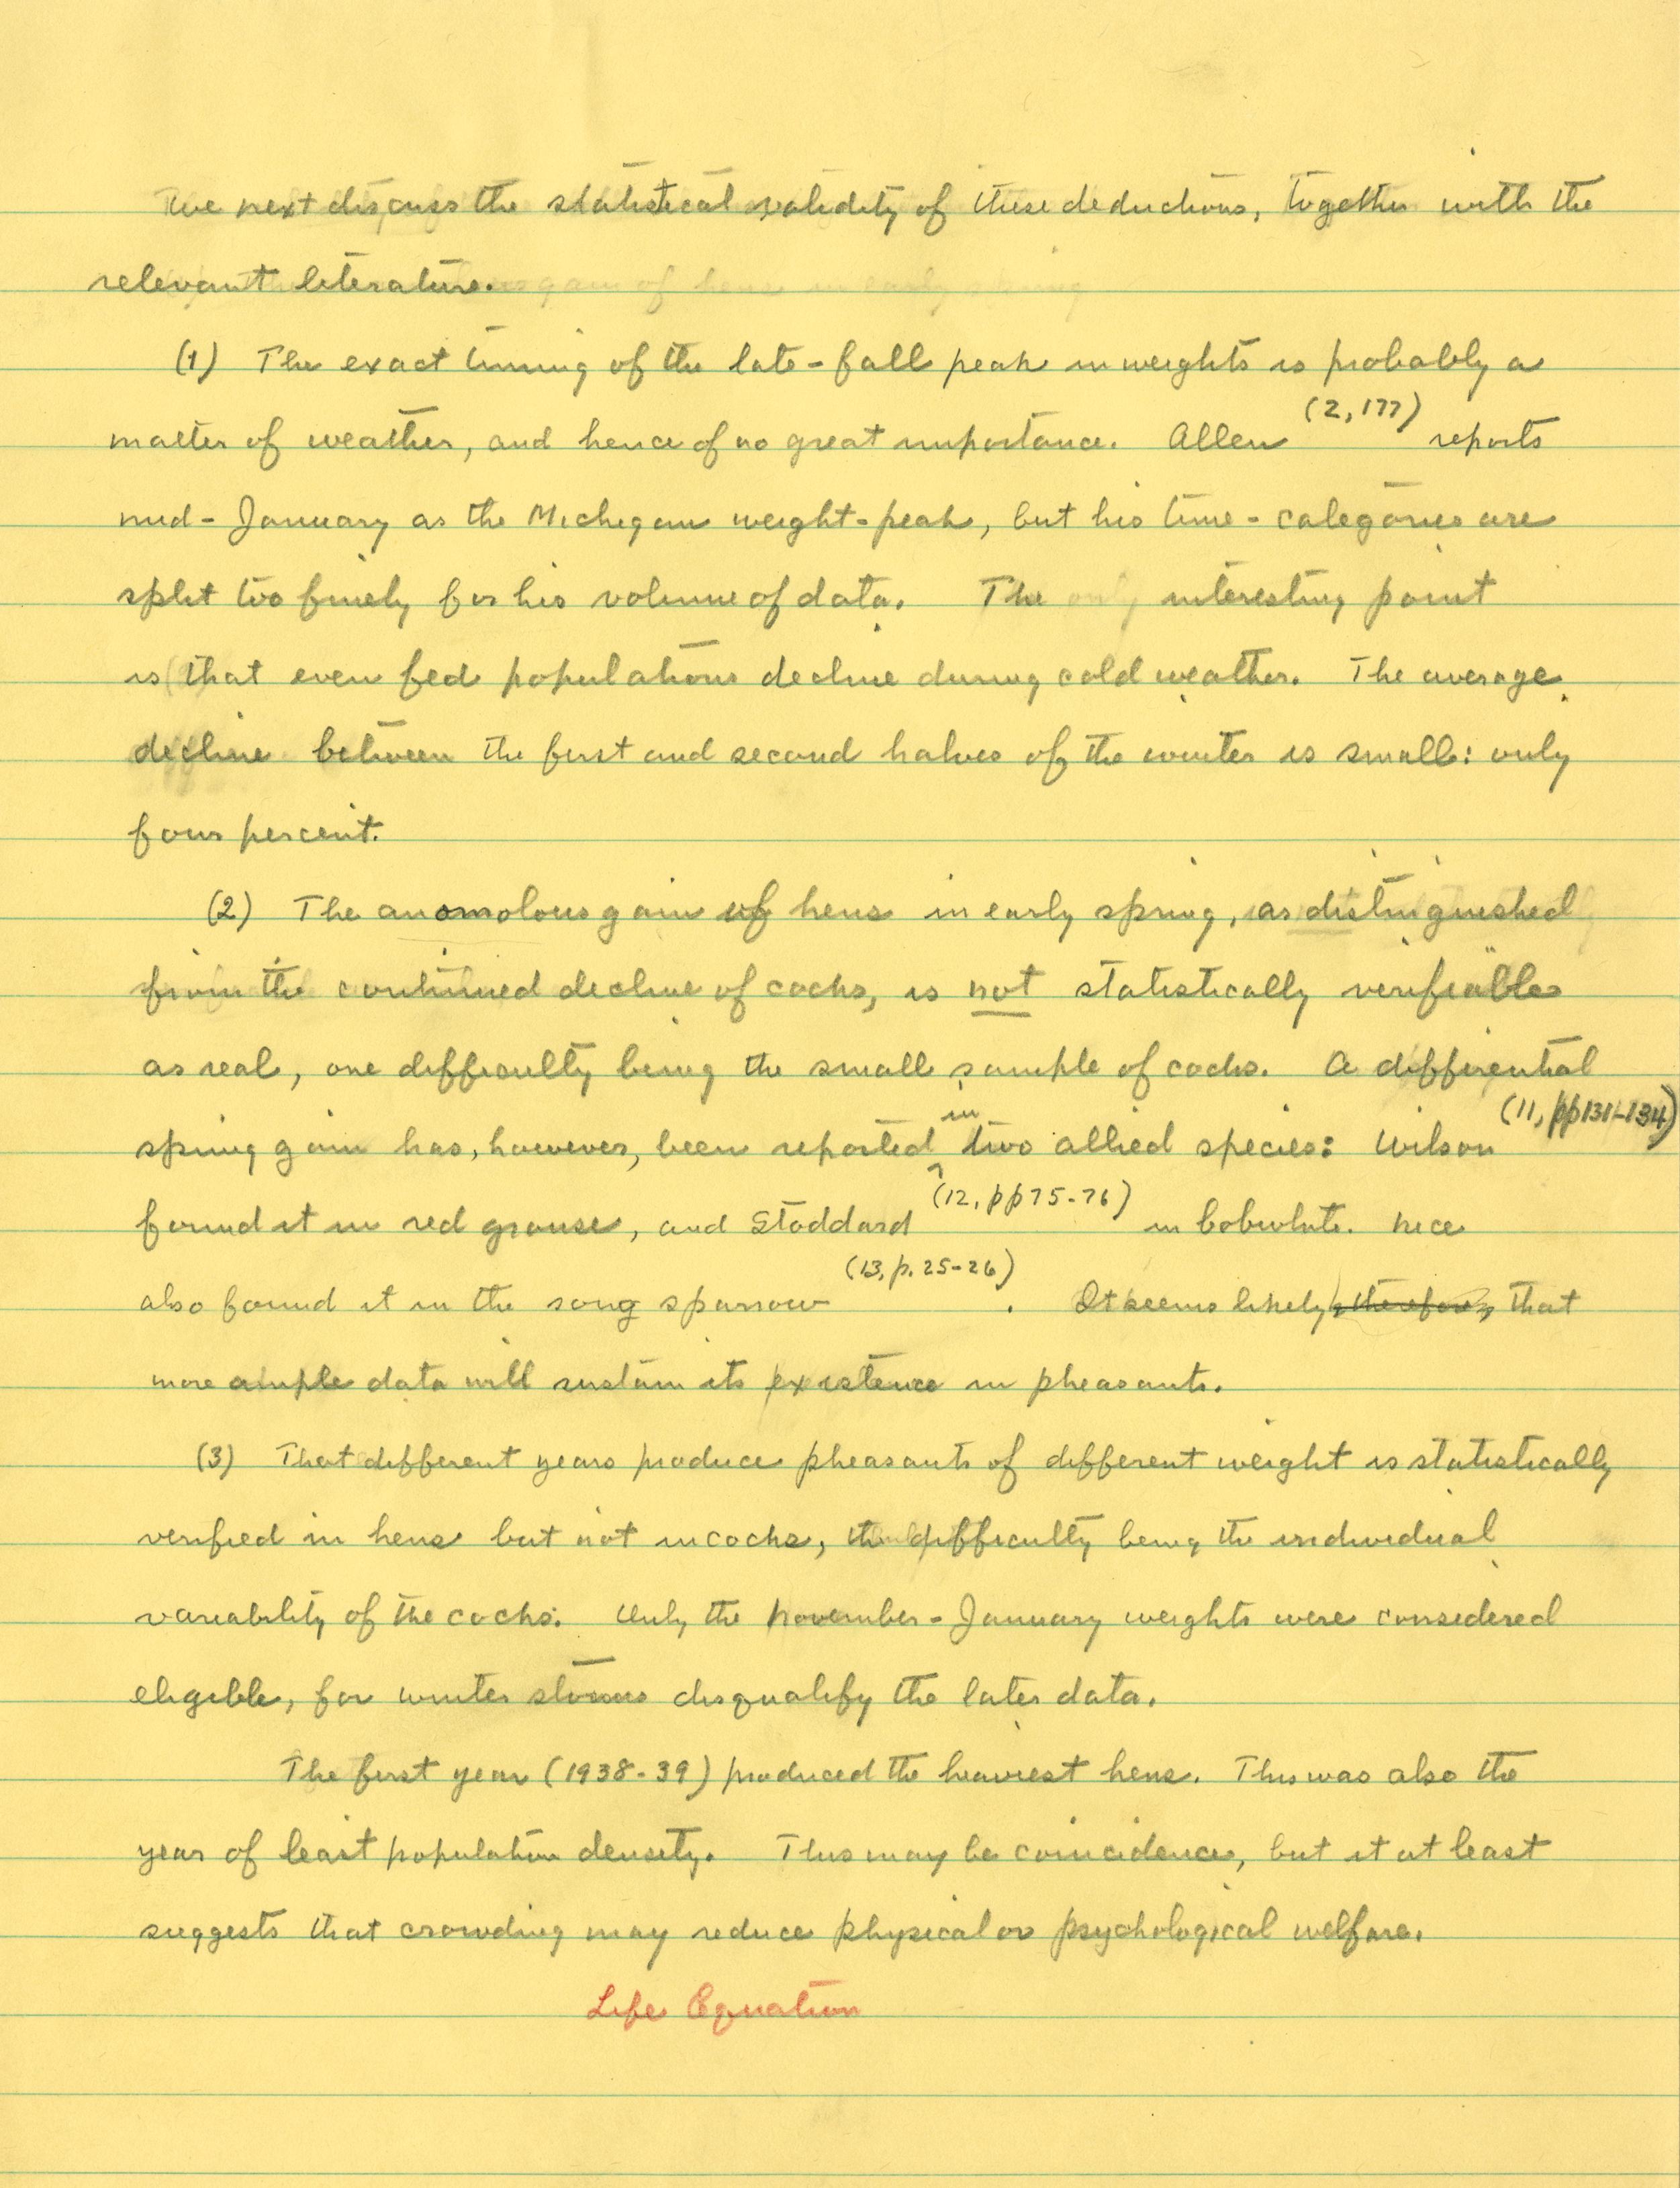 We next discuss the statistical validity of these deductions, together with the
relevant literature.
(1) The exact timing of the late-fall peak in weights is probably a
matter of weather, and hence of no great importance. Allen (2,177) reports
mid-January as the Michigan weight-peak, but his time-categories are
split too finely for his volume of data. The only interesting point
is that even fed populations decline during cold weather. The average
decline between the first and second halves of the winter is small: only
four percent.
(2) The anomolous gain of hens in early spring, as distinguished
from the continued decline of cocks, is not statistically verifiable
as real, one difficulty being the small sample of cocks. A differential
spring gain has, however, been reported in two allied species: Wilson (11, pp131-134)
found it in red grouse, and Stoddard (12, pp75-76) in bobwhite. Nice
also found it in the song sparrow (13, p. 25-26). It seems likely, therefore, that
more ample data will sustain its existence in pheasants.
(3) That different years produce pheasants of different weight is statistically
verified in hens but not in cocks, the difficulty being the individual
variability of the cocks. Only the November-January weights were considered
eligible, for winter storms disqualify the later data.
The first year (1938-39) produced the heaviest hens. This was also the
year of least population density. This may be coincidence, but it at least
suggests that crowding may reduce physical or psychological welfare.
Life Equation